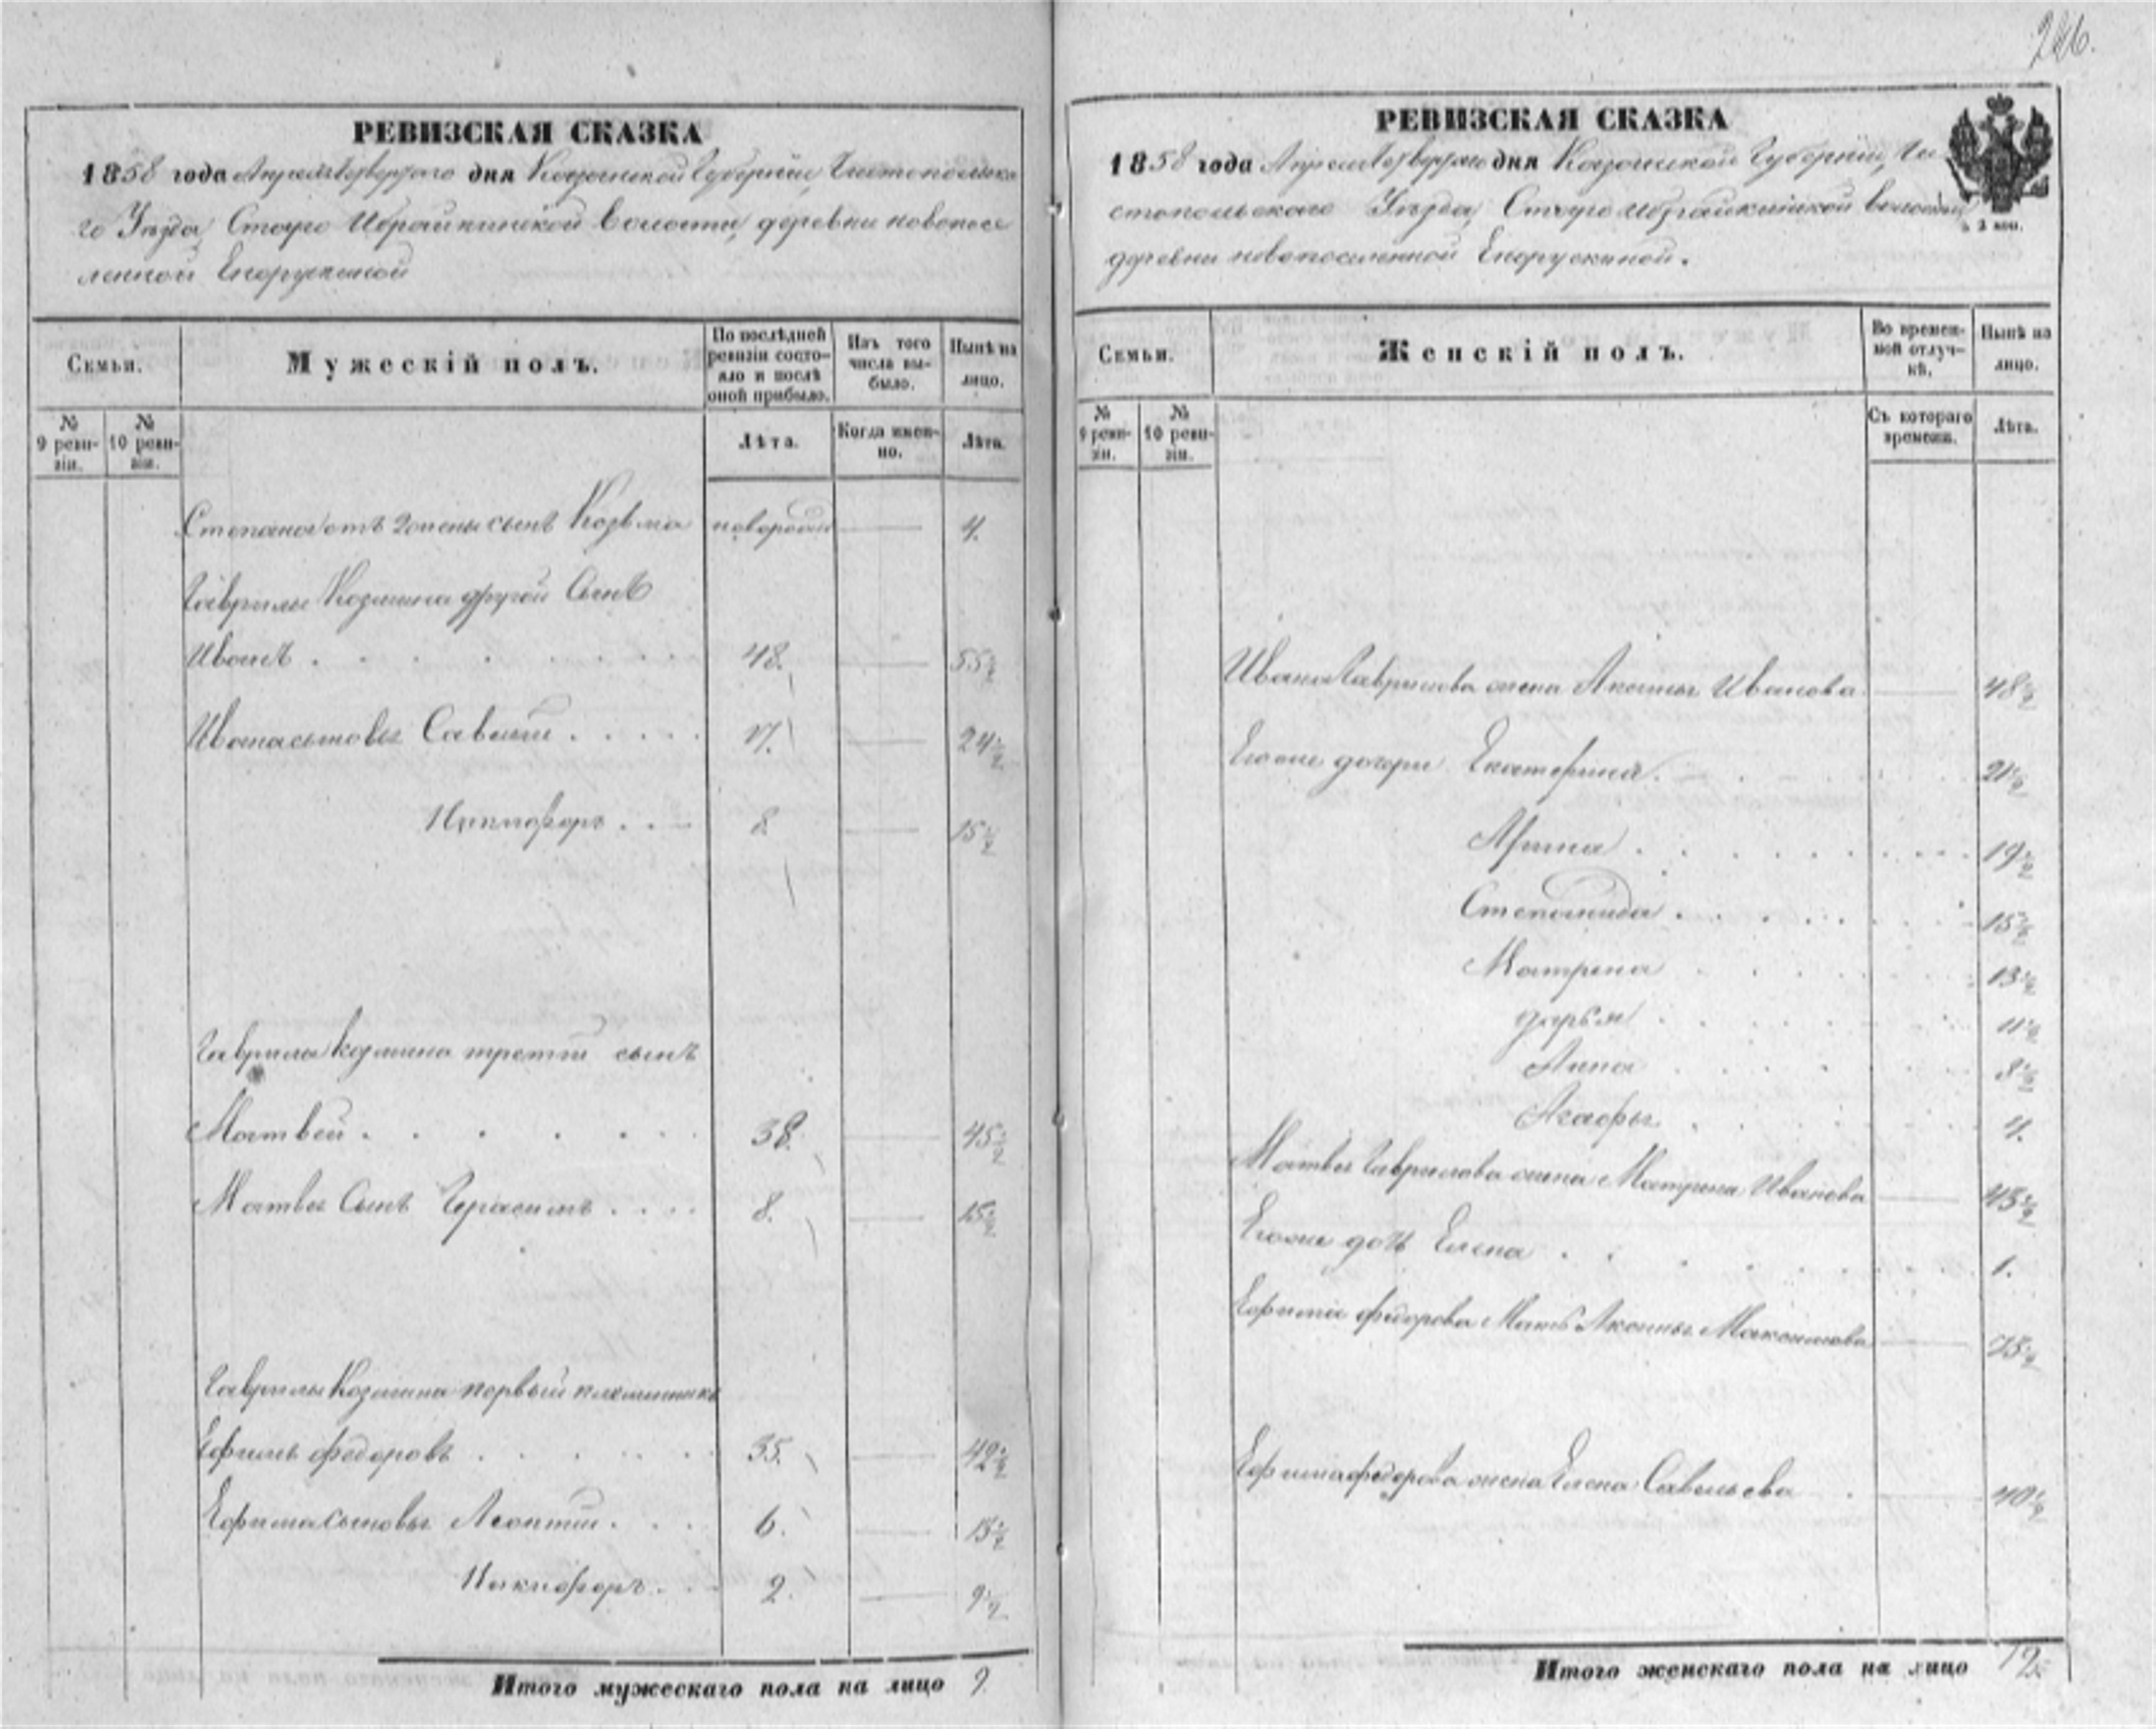 266.
РЕВИЗСКАЯ СКАЗКА
1858 года Апреля дня Казанской Губернiи, Чистопольска
го Уѣзда, Старо Ибрайкинской Волости, деревни новопосе
ленной Енорускиной
Семьи.
Мужескiй полъ.
По послѣдней ревизiи состояло и послѣ оной прибыло.
Изъ того числа выбыло.
Нынѣ на лицо.
№ 9 ревизiи.
№ 10 ревизiи.
Лѣта.
Когда именно.
Лѣта.
Степана отъ жены сынъ Козьма новорожд 4.
Гаврилы Козмина другой Сынъ
Иванъ 48. 55½
Ивана сыновья Савелiй 17. 24½
Никифоръ 8 15½
Гаврилы Козмина третiй сынъ
Матвей 38. 45½
Матвея Сынъ Герасимъ 8. 15½
Гаврилы Козмина первый племянникъ
Ефимъ Федоровъ 35. 42½
Ефима сыновья Леонтiй 6. 13½
Никифоръ 2. 9½
Итого мужескаго пола на лицо 9.
РЕВИЗСКАЯ СКАЗКА
1858 года Апреля дня Казанской Губернiи, Чи
стопольского Уѣзда, Старо Ибрайкинской волости
деревни новопоселенной Енорускиной.
3 коп.
Семьи.
Женскiй полъ.
Во временной отлучкѣ.
Нынѣ на лицо.
№ 9 ревизiи.
№ 10 ревизiи.
Съ котораго времени.
Лѣта.
Ивана Гаврилова жена Иванова 48½
Его же дочери Екатерина 21½
Арина 19½
Степанида 15½
Матрена 13½
Дарья 11½
Анна 8½
Агафья 4.
Матвея Гаврилова жена Матрена Иванова 43½
Его же дочь Елена 1.
Ефима Федорова Мать Максимова 75½
Ефима Федорова жена Елена Савельева 40½
Итого женскаго пола на лицо 12